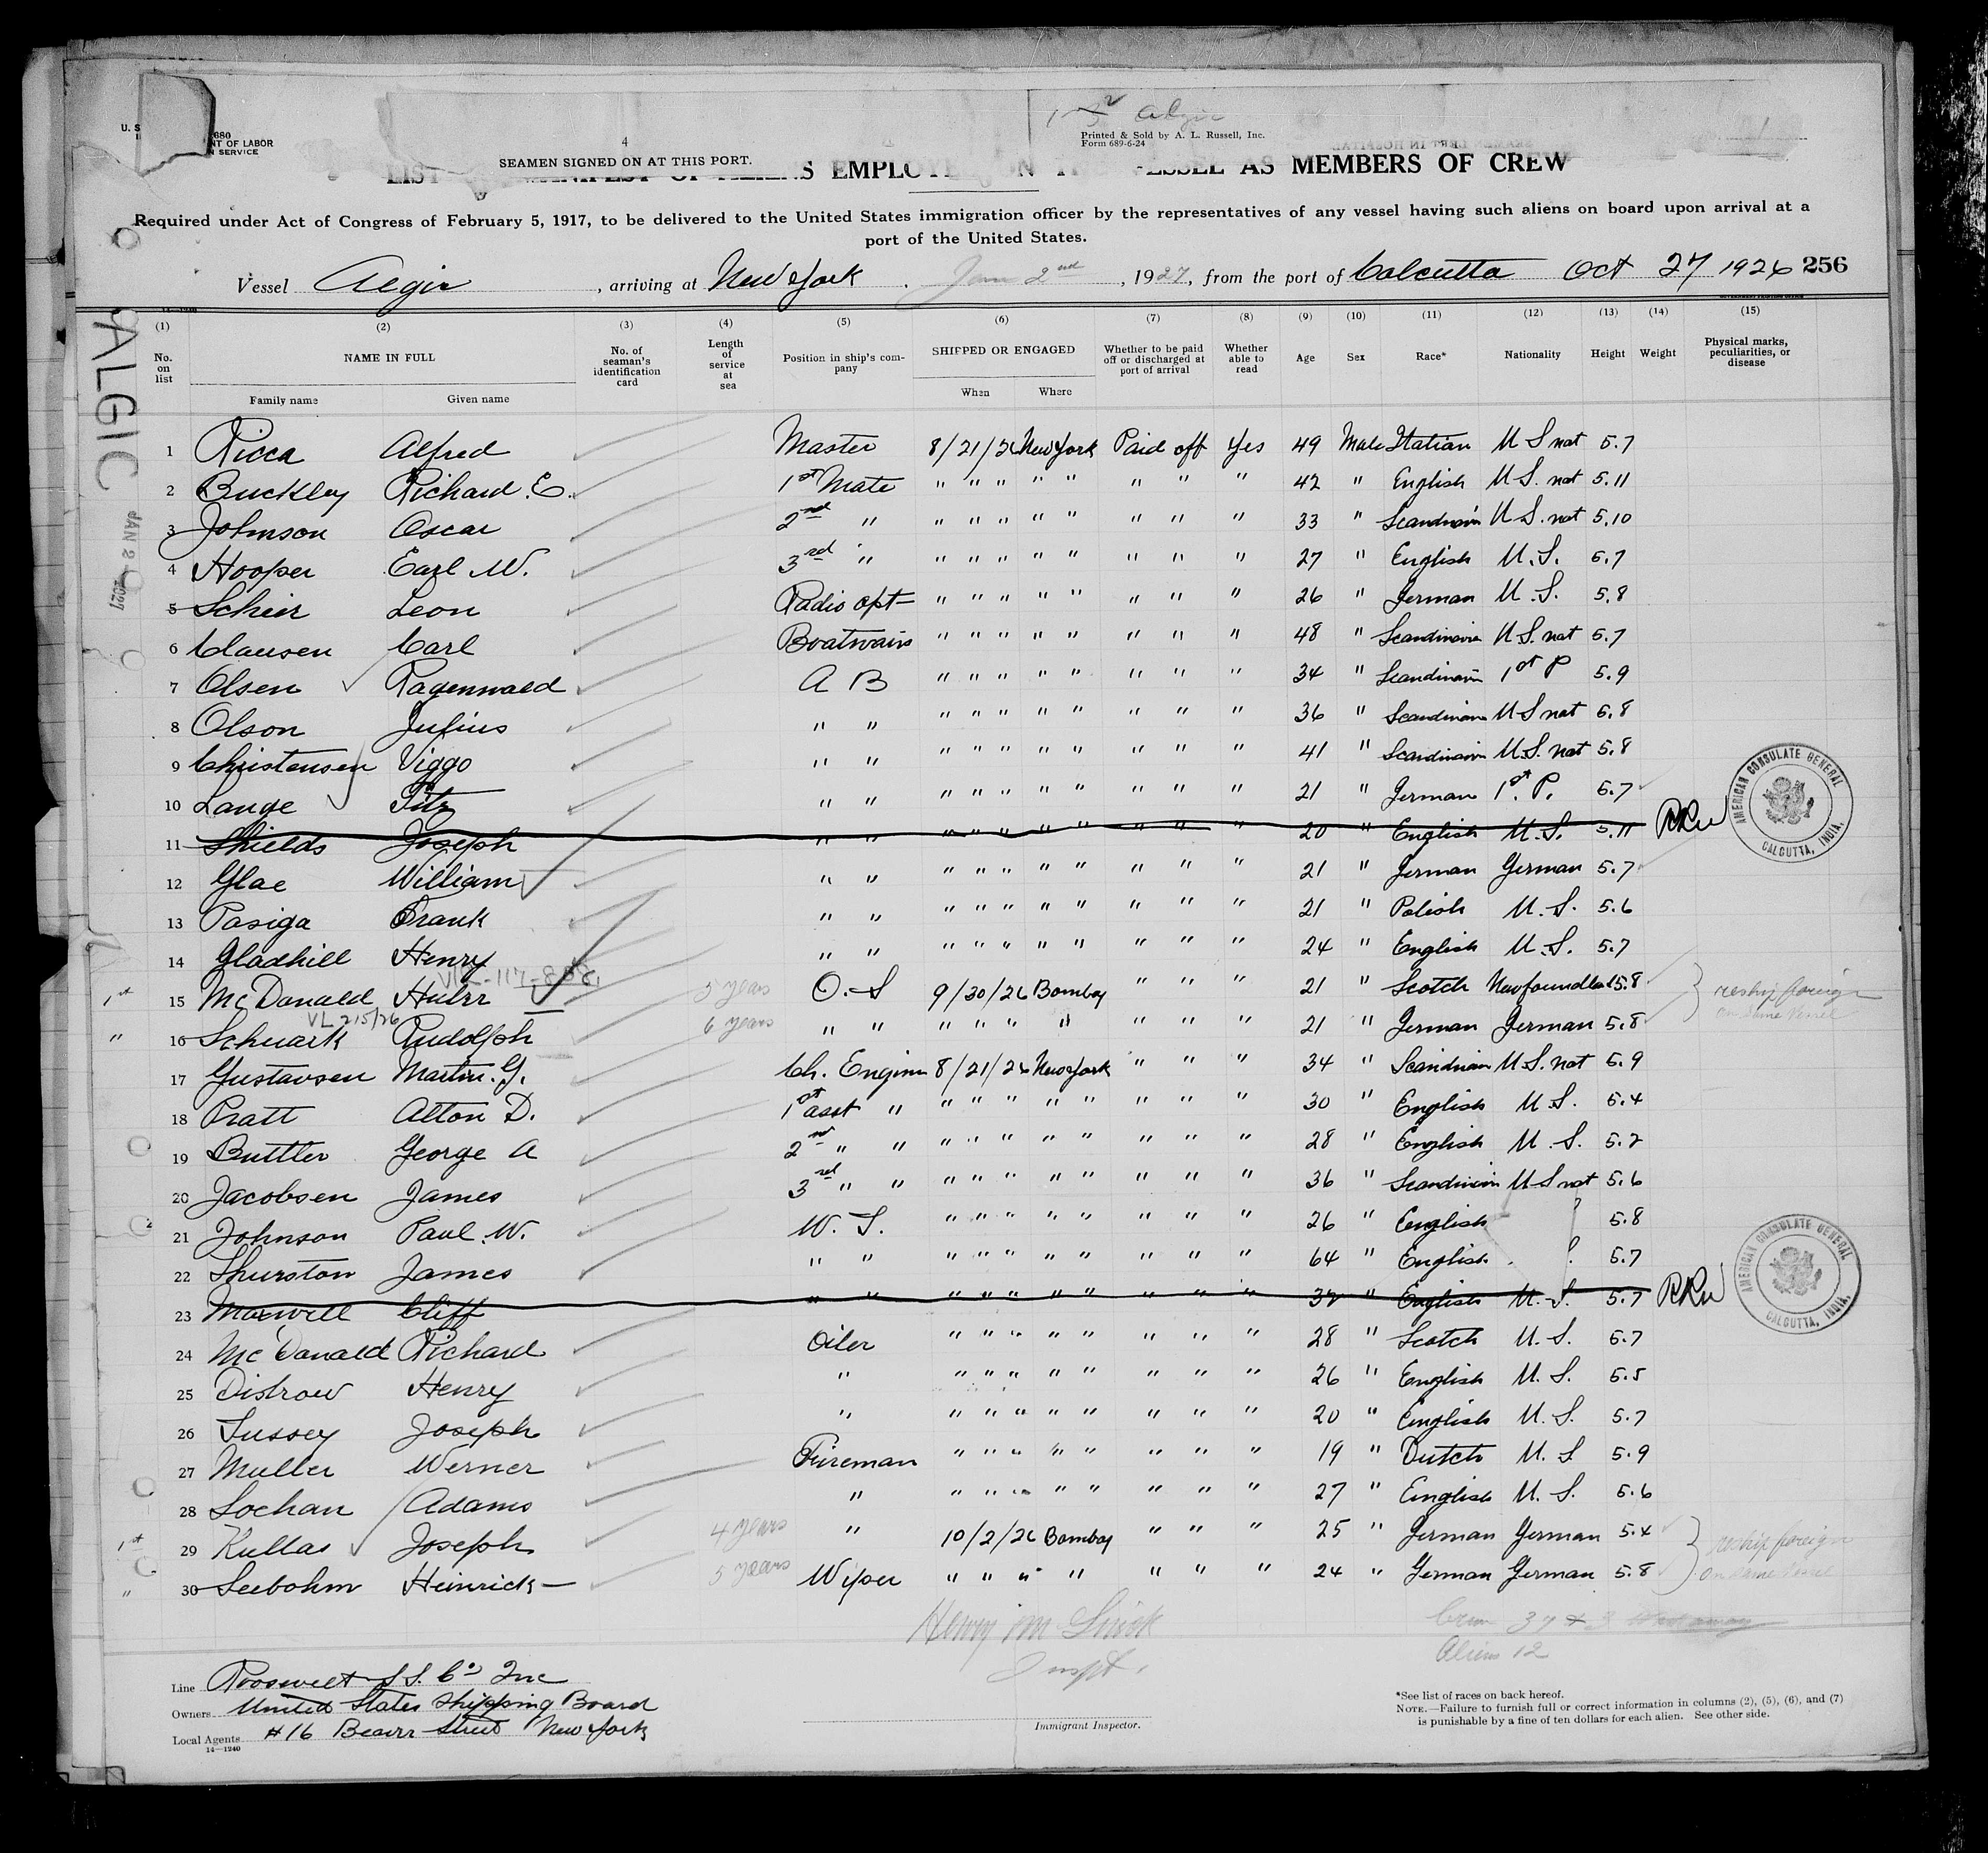 U. S
680
NT OF LABOR
N SERVICE
4
SEAMEN SIGNED ON AT THIS PORT.
Printed & Sold by A. L. Russell, Inc.
Form 689-6-24
LIST MANIFEST OF ALIENS EMPLOY ON VESSEL AS MEMBERS OF CREW
Required under Act of Congress of February 5, 1917, to be delivered to the United States immigration officer by the representatives of any vessel having such aliens on board upon arrival at a
port of the United States.
Vessel Algic, arriving at New York. Jan 2nd, 1927, from the port of Calcutta Oct 27 1926 256
ALGIC
JAN 2 - 1927
(1) (2) (3) (4) (5) (6) (7) (8) (9) (10) (11) (12) (13) (14) (15)
No. on list NAME IN FULL No. of seaman's identification card Length of service at sea Position in ship's company SHIPPED OR ENGAGED Whether to be paid off or discharged at port of arrival Whether able to read Age Sex Race* Nationality Height Weight Physical marks, peculiarities, or disease
Family name Given name When Where
1 Ricca Alfred Master 8/21/26 New York Paid off Yes 49 Male Italian U S nat 5.7
2 Buckley Richard E. 1st Mate " " " " " " " " 42 " English U.S. nat 5.11
3 Johnson Oscar 2nd " " " " " " " " " 33 " Scandinavin U.S. nat 5.10
4 Hooper Earl W. 3rd " " " " " " " " " 27 " English U.S. 5.7
5 Schier Leon Radio opt " " " " " " " " 26 " German U.S. 5.8
6 Clausen Carl Boatswain " " " " " " " " 48 " Scandinavia U.S. nat 5.7
7 Olsen Ragenwald A B " " " " " " " " 34 " Scandinavin 1st P 5.9
8 Olson Julius " " " " " " " " " " 36 " Scandinavin U S nat 5.8
9 Christensen Viggo " " " " " " " " " " 41 " Scandinavin U.S. nat 5.8
10 Lange Fitz " " " " " " " " " " 21 " German 1st. P. 5.7
11 Shields Joseph " " " " " " " " " " 20 " English U.S. 5.11
AMERICAN CONSULATE GENERAL
CALCUTTA, INDIA.
12 Glae William " " " " " " " " " " 21 " German German 5.7
13 Pasiga Frank " " " " " " " " " " 21 " Polish U.S. 5.6
14 Gladhill Henry " " " " " " " " " " 24 " English U.S. 5.7
1st 15 McDonald 5 years O.S 9/30/26 Bombay " " " 21 " Scotch Newfoundland 5.8 reship foreign
on same vessel
VL 215/26
" 16 Schuark Rudolph 6 years " " " " " " " " " 21 " German German 5.8
17 Gustavsen Martin. G. Ch. Engine 8/21/26 New York " " " 34 " Scandinavian U.S. nat 5.9
18 Pratt Alton D. 1st asst " " " " " " " " " 30 " English U.S. 5.4
19 Buttler George A 2nd " " " " " " " " " " 28 " English U.S. 5.2
20 Jacobsen James 3rd " " " " " " " " " " 36 " Scandinavin U S nat 5.6
21 Johnson Paul W. W. T. " " " " " " " " 26 " English 5.8
22 Thurston James " " " " " " " " " " 64 " English 5.7
23 Maxwell Cliff " " " " " " " " " " 32 " English U.S. 5.7
AMERICAN CONSULATE GENERAL
CALCUTTA, INDIA.
24 McDonald Richard Oiler " " " " " " " " 28 " Scotch U.S. 5.7
25 Distrow Henry " " " " " " " " " 26 " English U.S. 5.5
26 Tussey Joseph " " " " " " " " " 20 " English U.S. 5.7
27 Muller Werner Fireman " " " " " " " " 19 " Dutch U.S 5.9
28 Lochan Adams " " " " " " " " " 27 " English U.S. 5.6
1st 29 Kullas Joseph 4 years " 10/2/26 Bombay " " " 25 " German German 5.4 reship foreign
on same vessel
" 30 Seebohm Heinrick 5 years Wiper " " " " " " " 24 " German German 5.8
Inspt.
Crew 37
Aliens 12
Line Roosevelt S.S. Co Inc
Owners United States Shipping Board
Local Agents #16 Beaver Street New York
14—1240
Immigrant Inspector.
*See list of races on back hereof.
NOTE.—Failure to furnish full or correct information in columns (2), (5), (6), and (7)
is punishable by a fine of ten dollars for each alien. See other side.